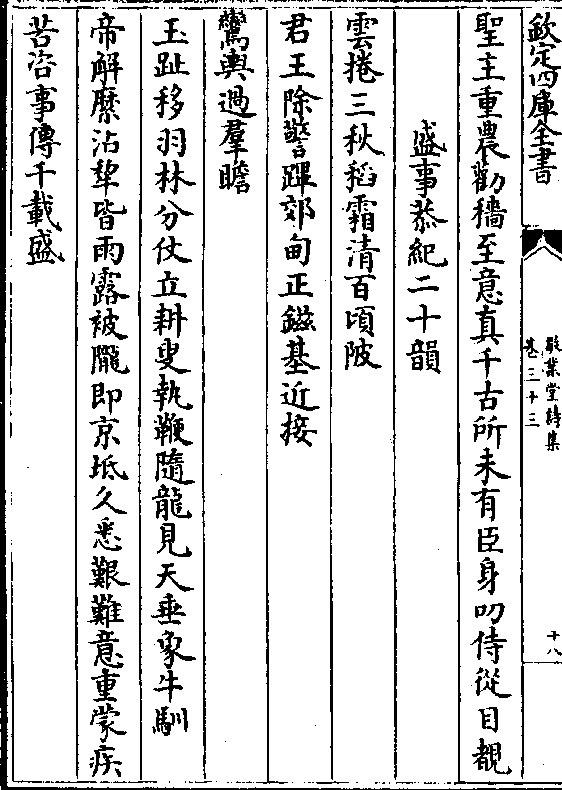 欽定四庫全書
敬業堂詩集
卷三十三
十八
聖主重農勸穡至意真千古所未有臣身叨侍從目覩
盛事恭紀二十韻
雲捲三秋稻霜清百頃陂
君王除警蹕郊甸正鎡基近接
鸞輿過羣瞻
玉趾移羽林分仗立耕叟執鞭隨龍見天垂象牛馴
帝解縻沾犂皆雨露被隴即京坻久悉艱難意重蒙疾
苦咨事傳千載盛